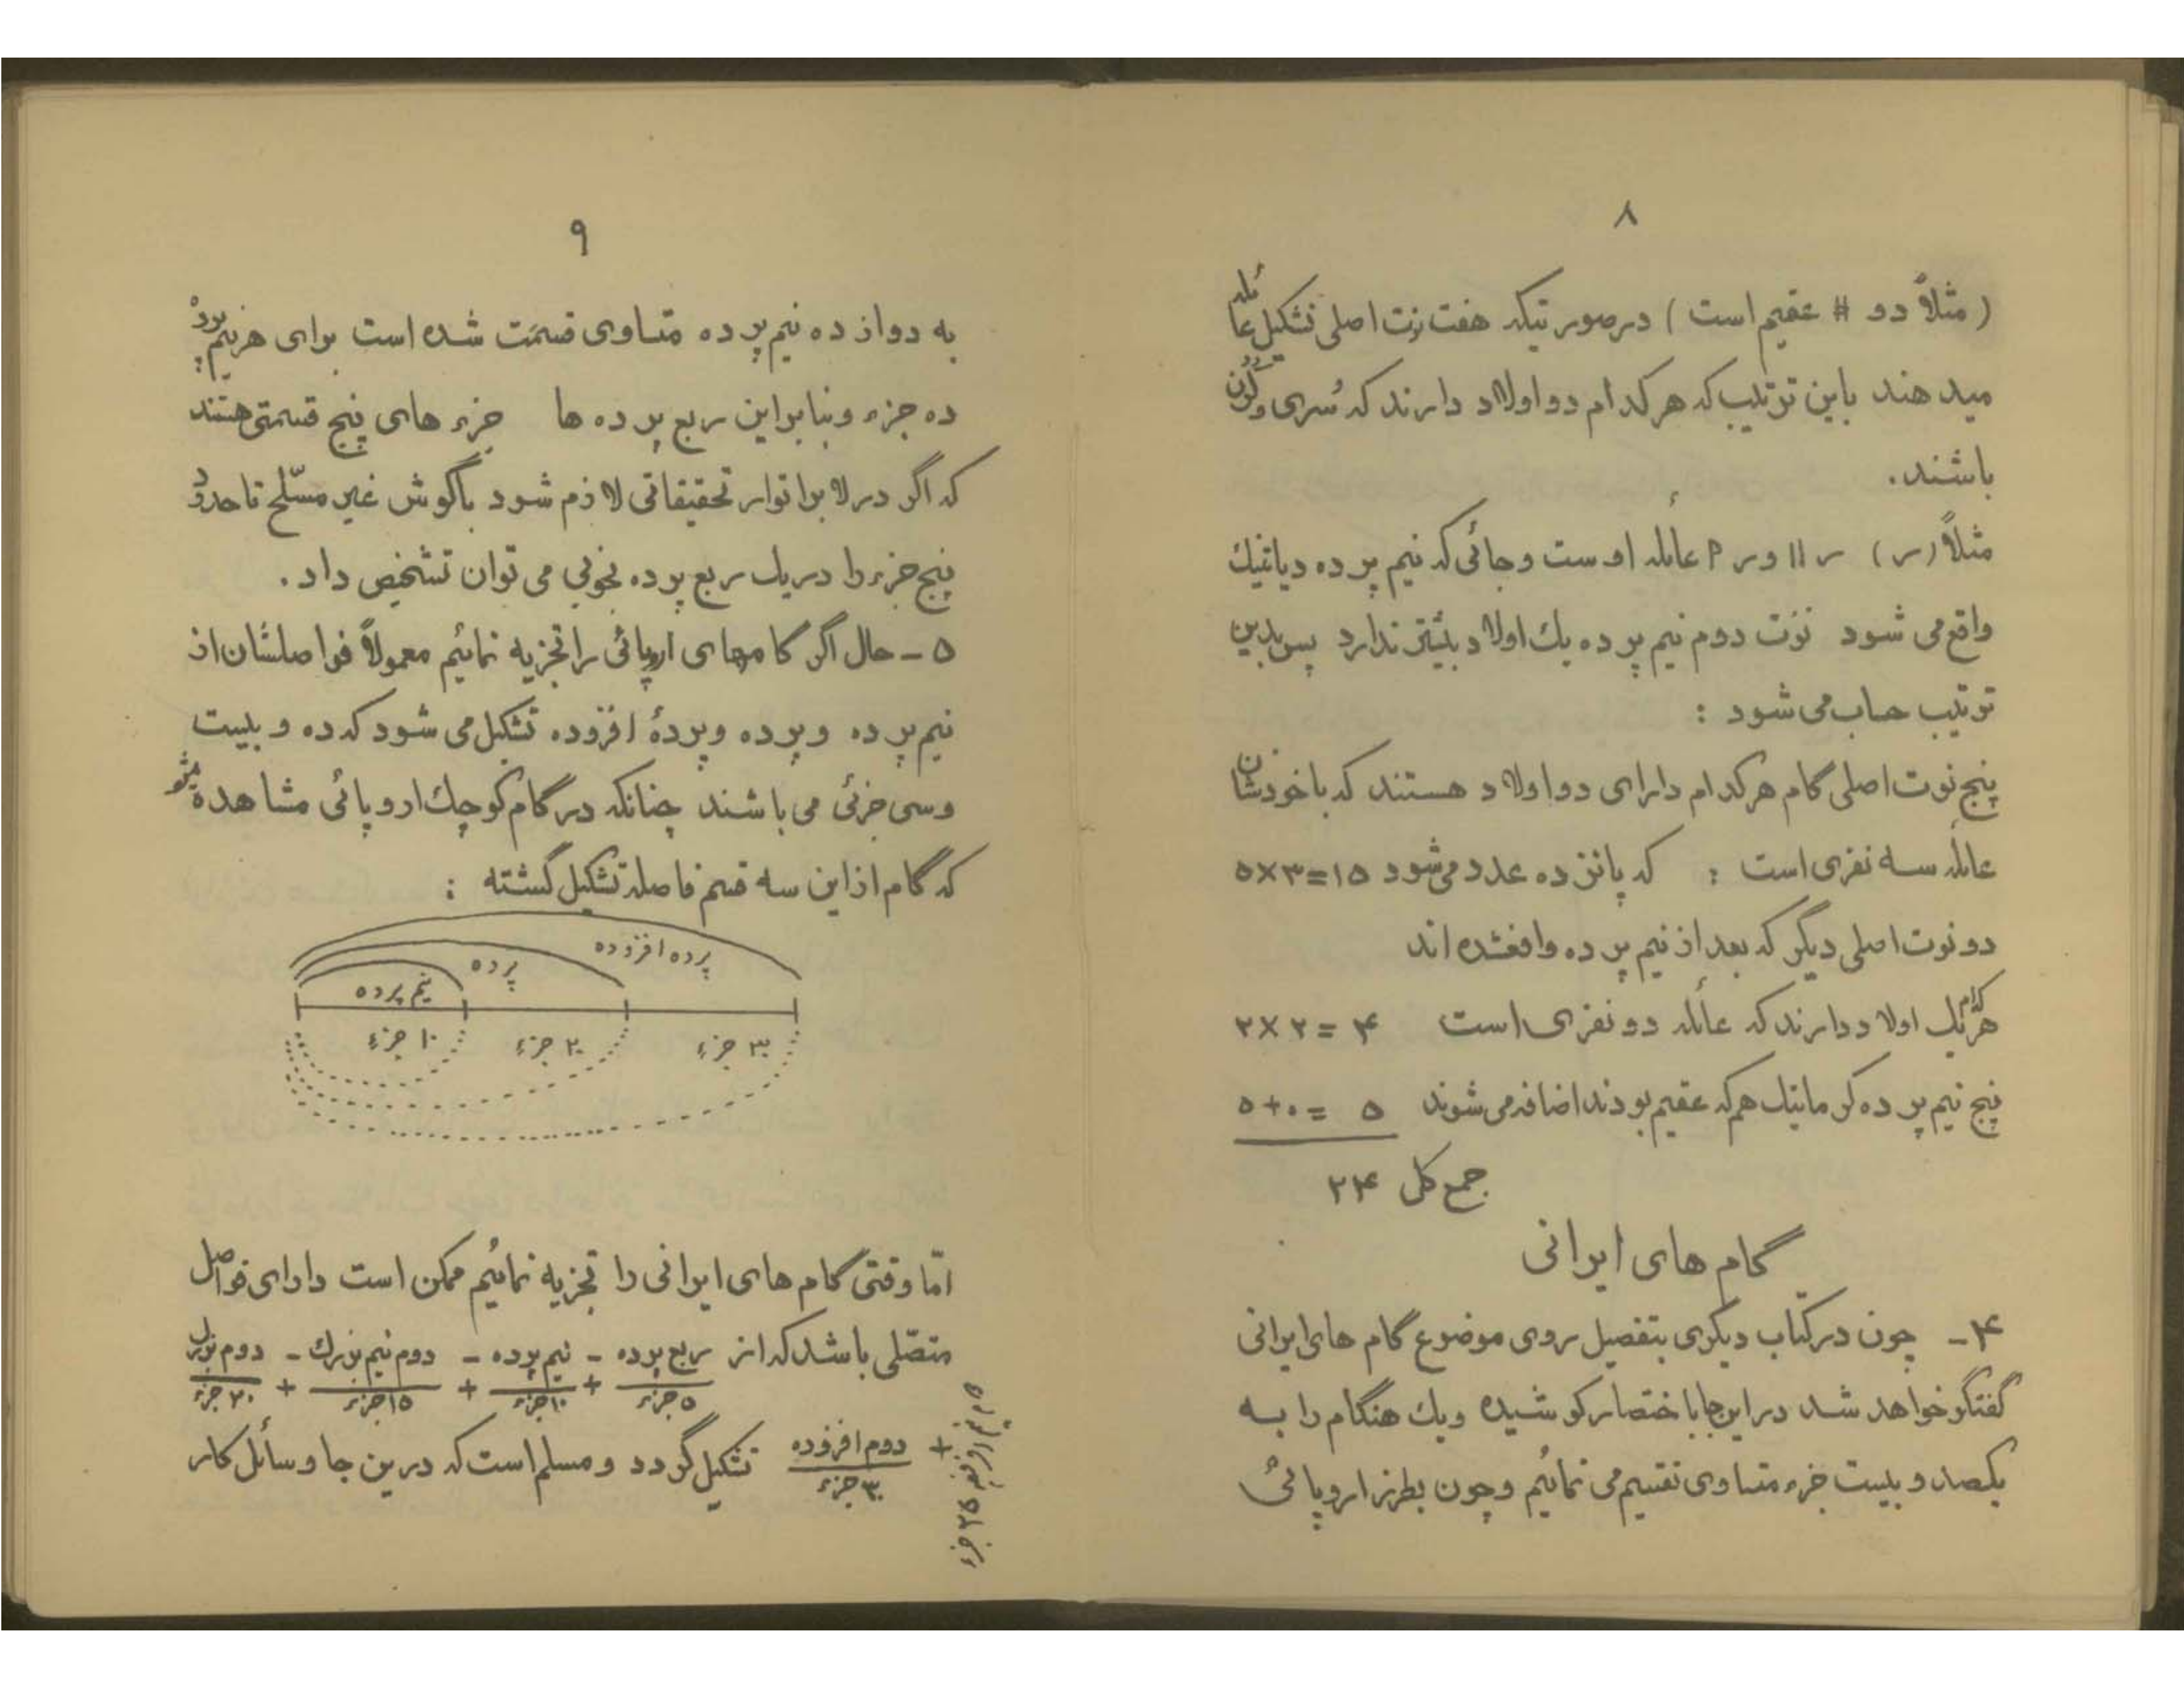 ۸
( مثلاً دو # عقیم است ) درصورتیکه هفت نت اصلی تشکیل عائله
میدهند باین ترتیب که هر کدام دو اولاد دارند که سُری و کُرُن
باشند.
مثلاً (ر) ر || و ر P عائله اوست و جائی که نیم پرده دیاتنیک
واقع می شود نوت دوم نیم پرده یک اولاد بیشتر ندارد پس بدین
ترتیب حساب می شود :
پنج نوت اصلی گام هر کدام دارای دو اولاد هستند که با خودشان
عائله سه نفری است : که پانزده عدد میشود ۱۵=۳×۵
دو نوت اصلی دیگر که بعد از نیم پرده واقعشده اند
هرکدام یک اولاد دارند که عائله دو نفری است ۴ = ۲×۲
پنج نیم پرده کرماتیک هم که عقیم بودند اضافه می شوند ۵ =۰+۵
جمع کل ۲۴
گام های ایرانی
۴- چون در کتاب دیگری بتفصیل روی موضوع گام های ایرانی
گفتگو خواهد شد در اینجا باختصار کوشیده و یک هنگام را به
یکصد و بیست جزء متساوی تقسیم می نمائیم و چون بطرز اروپائی
۹
به دوازده نیم پرده متساوی قسمت شده است برای هر نیم پرده
ده جزء و بنابراین ربع پرده ها جزء های پنج قسمتی هستند
که اگر در لابراتوار تحقیقاتی لازم شود باگوش غیر مسلّح تا حدود
پنج جزء را در یک ربع پرده بخوبی می توان تشخیص داد .
۵ - حال اگر گامهای اروپائی را تجزیه نمائیم معمولاً فواصلشان از
نیم پرده و پرده و پردۀ افزوده تشکیل می شود که ده و بیست
و سی جزئی می باشند چنانکه در گام کوچک اروپائی مشاهده میشود
که گام از این سه قسم فاصله تشکیل گشته :
پرده افزوده
پرده
نیم پرده
۱۰ جزء ۲۰ جزء ۳۰ جزء
امّا وقتی گام های ایرانی را تجزیه نمائیم ممکن است دارای فواصل
متصّلی باشد که از ربع پرده - نیم پرده - دوم نیم بزرگ - دوم بزرگ
۵ جزء + ۱۰ جزء + ۱۵ جزء + ۲۰ جزء
+ دوم افزوده تشکیل گردد و مسلم است که درین جا وسائل کار
۳۰ جزء
دوم نیم افزوده ۲۵ جزء